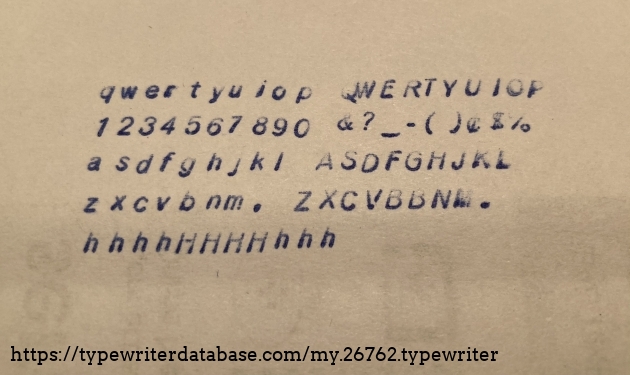 qwertyuiop QWERTYUIOP
1234567890 &?_-()¢$%
asdfghjkl ASDFGHJKL
zxcvbnm. ZXCVBBNM.
hhhhHHHHhhh
https://typewriterdatabase.com/my.26762.typewriter